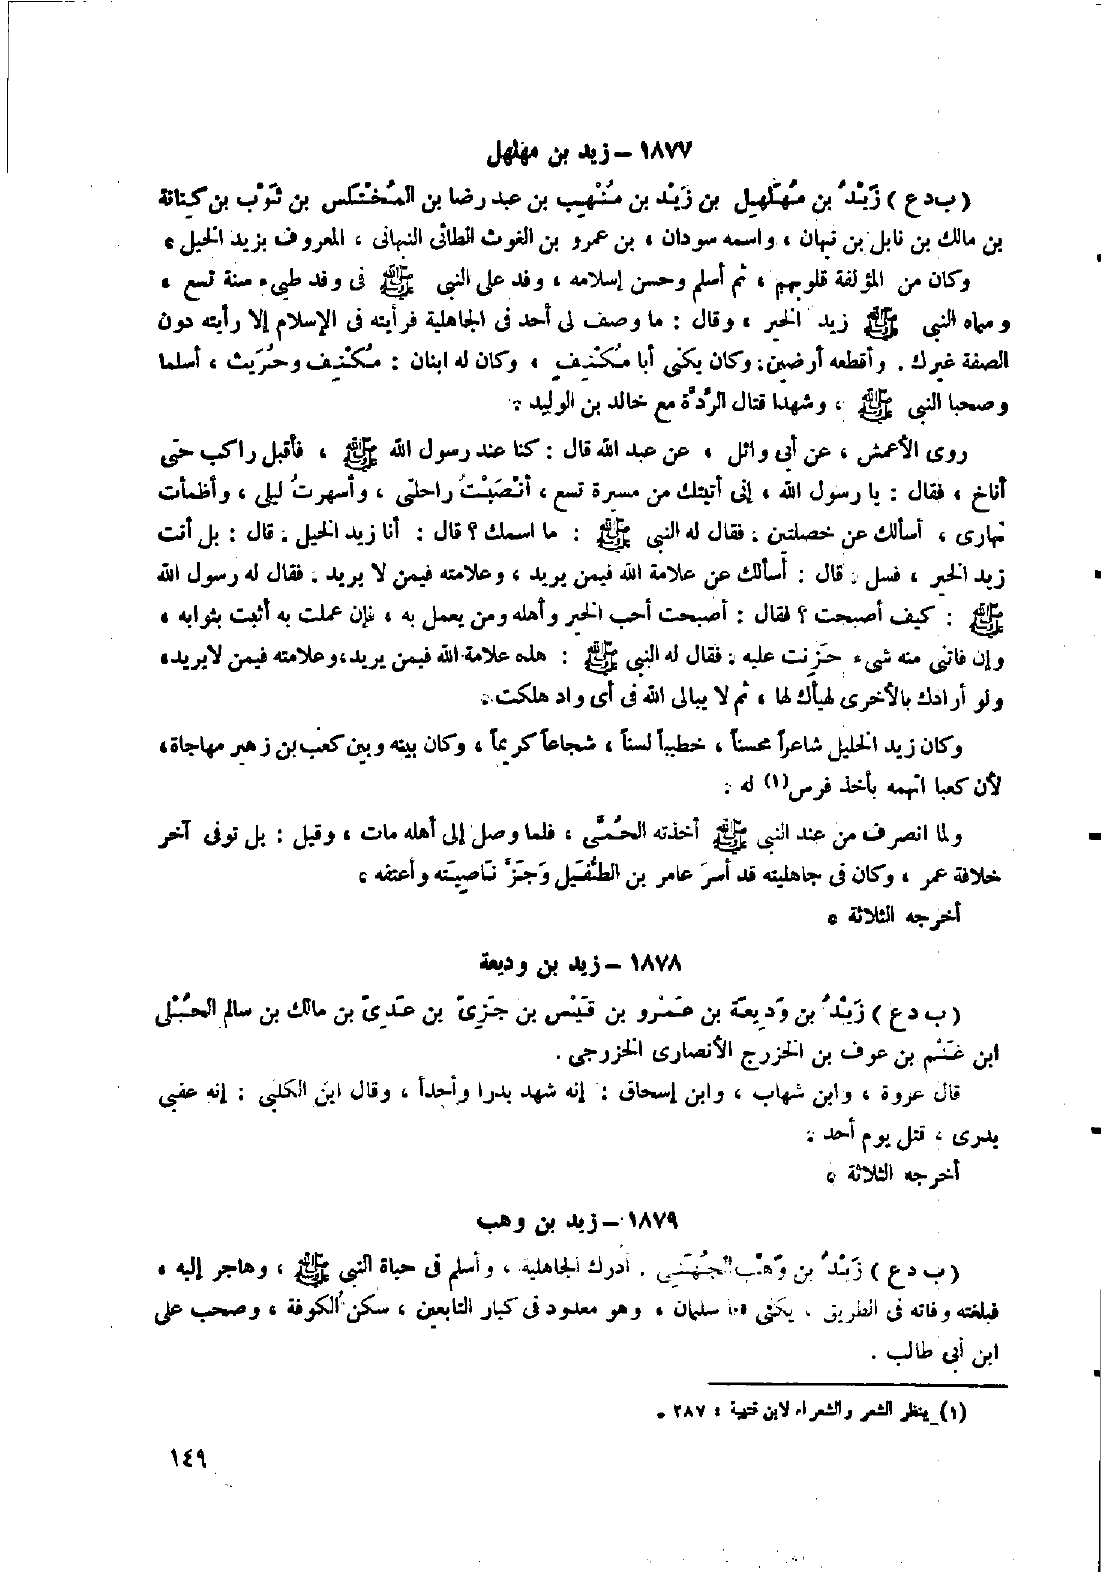 ١٨٧٧ – زيد بن مهلهل
( ب د ع ) زَيْدُ بن مُهَلْهِيل بن زَيْد بن مُنْهِب بن عبد رضا بن المُخْتَلِس بن ثَوْب بن كِنانة
بن مالك بن نابل بن نبهان ، واسمه سودان ، بن عمرو بن الغوث الطائى النبهانى ، المعروف بزيد الخيل .
وكان من المؤلفة قلوبهم ، ثم أسلم وحسن إسلامه ، وفد على النبي ﷺ فى وفد طيىء سنة تسع ،
وسماه النبي ﷺ زيد الخير ، وقال : ما وصف لى أحد فى الجاهلية فرأيته فى الإسلام إلا رأيته دون
الصفة غيرك . وأقطعه أرضين ؛ وكان يكنى أبا مُكْنِف ، وكان له ابنان : مُكْنِف وحُرَيث ، أسلما
وصحبا النبي ﷺ ، وشهدا قتال الرِّدَّة مع خالد بن الوليد .
روى الأعمش ، عن أبي وائل ، عن عبد الله قال : كنا عند رسول الله ﷺ ، فأقبل راكب حتى
أناخ ، فقال : يا رسول الله ، إنى أتيتك من مسيرة تسع ، أنْصَبْتُ راحلتى ، وأسهرتُ ليلى ، وأظمأت
نهارى ، أسألك عن خصلتين . فقال له النبي ﷺ : ما اسمك ؟ قال : أنا زيد الخيل . قال : بل أنت
زيد الخير ، فسل . قال : أسألك عن علامة الله فيمن يريد ، وعلامته فيمن لا يريد . فقال له رسول الله
ﷺ : كيف أصبحت ؟ فقال : أصبحت أحب الخير وأهله ومن يعمل به ، فإن عملت به أثبت بثوابه ،
وإن فاتنى منه شىء حَزِنت عليه . فقال له النبي ﷺ : هذه علامة الله فيمن يريد ، وعلامته فيمن لا يريد ،
ولو أرادك بالأخرى لهيأك لها ، ثم لا يبالى الله فى أى واد هلكت .
وكان زيد الخليل شاعراً محسناً ، خطيباً لسناً ، شجاعاً كريماً ، وكان بينه وبين كعب بن زهير مهاجاة ،
لأن كعبا اتهمه بأخذ فرس (١) له .
ولما انصرف من عند النبي ﷺ أخذته الحُمَّى ، فلما وصل إلى أهله مات ، وقيل : بل توفى آخر
خلافة عمر ، وكان فى جاهليته قد أسرَ عامر بن الطُّفَيل وَجَزَّ نَاصِيَته وأعتقه .
أخرجه الثلاثة .
١٨٧٨ – زيد بن وديعة
( ب د ع ) زَيْدُ بن وَدِيعَة بن عَمْرو بن قَيْس بن جَزِىّ بن عَدِىّ بن مالك بن سالم الحُبْلى
ابن غَنْم بن عوف بن الخزرج الأنصارى الخزرجى .
قال عروة ، وابن شهاب ، وابن إسحاق : إنه شهد بدرا وأحداً ، وقال ابن الكلبى : إنه عقبى
بدرى ، قتل يوم أحد .
أخرجه الثلاثة .
١٨٧٩ – زيد بن وهب
( ب د ع ) زَيْدُ بن وَهْب الجُهَنِى . أدرك الجاهلية ، وأسلم فى حياة النبي ﷺ ، وهاجر إليه ،
فبلغته وفاته فى الطريق . يكنى سلمان ، وهو معدود فى كبار التابعين ، سكن الكوفة ، وصحب على
ابن أبى طالب .
(١) ينظر الشعر والشعراء لابن قتيبة : ٢٨٧ .
١٤٩